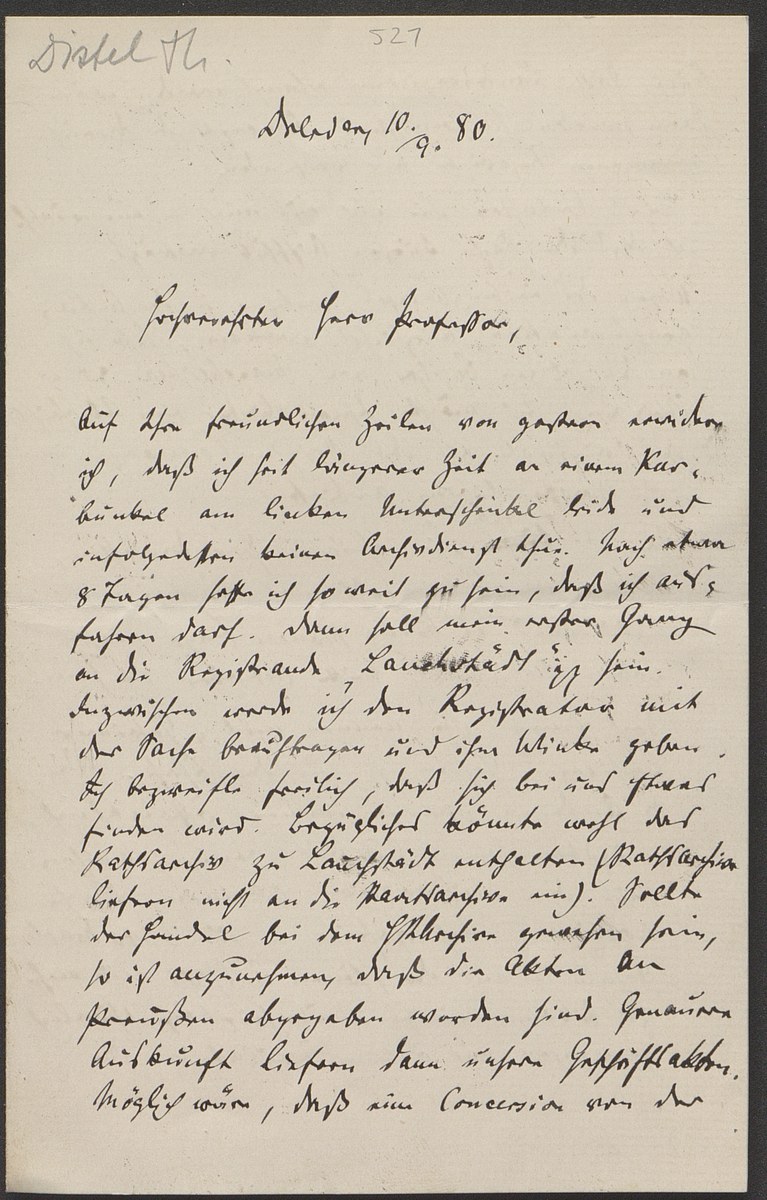 Distel Th.
527
Dresden, 10./9. 80.
Hochverehrter Herr Professor,
Auf Ihre freundlichen Zeilen von gestern erwidere
ich, daß ich seit längerer Zeit an einem Kar-
bunkel am linken Unterschenkel leide und
infolgedessen keinen Archivdienst thue. Nach etwa
8 Tagen hoffe ich so weit zu sein, daß ich aus-
fahren darf. Dann soll mein erster Gang
an die Registrande "Lauchstädt" sein.
Inzwischen werde ich den Registrator mit
der Sache beauftragen und ihm Winke geben.
Ich bezweifle freilich, daß sich bei uns Etwas
finden wird. Bezügliches könnte wohl das
Rathsarchiv zu Lauchstädt enthalten (Rathsarchive
liefern nicht an die Staatsarchive ein). Sollte
der Handel bei dem HStArchive gewesen sein,
so ist anzunehmen, daß die Akten an
Preußen abgegeben worden sind. Genauere
Auskunft liefern dann unsere Geschäftsakten.
Möglich wäre, daß eine Concession von der